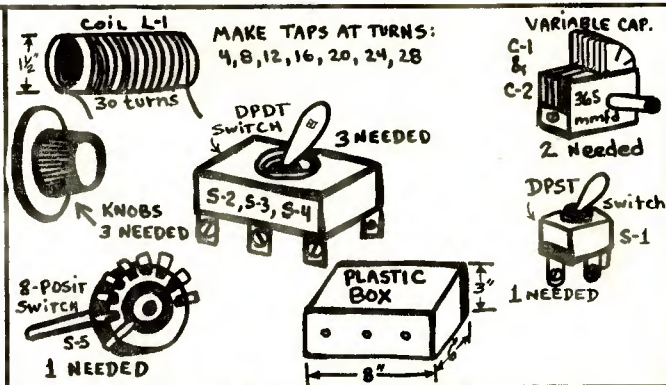 COIL L-1
1½"
30 turns
MAKE TAPS AT TURNS:
4, 8, 12, 16, 20, 24, 28
VARIABLE CAP.
C-1
&
C-2
365
mmfd
2 Needed
DPDT
SWITCH
3 NEEDED
S-2, S-3, S-4
KNOBS
3 NEEDED
DPST
Switch
S-1
1 NEEDED
8-POSIT
SWITCH
S-5
1 NEEDED
PLASTIC
BOX
3"
6"
8"